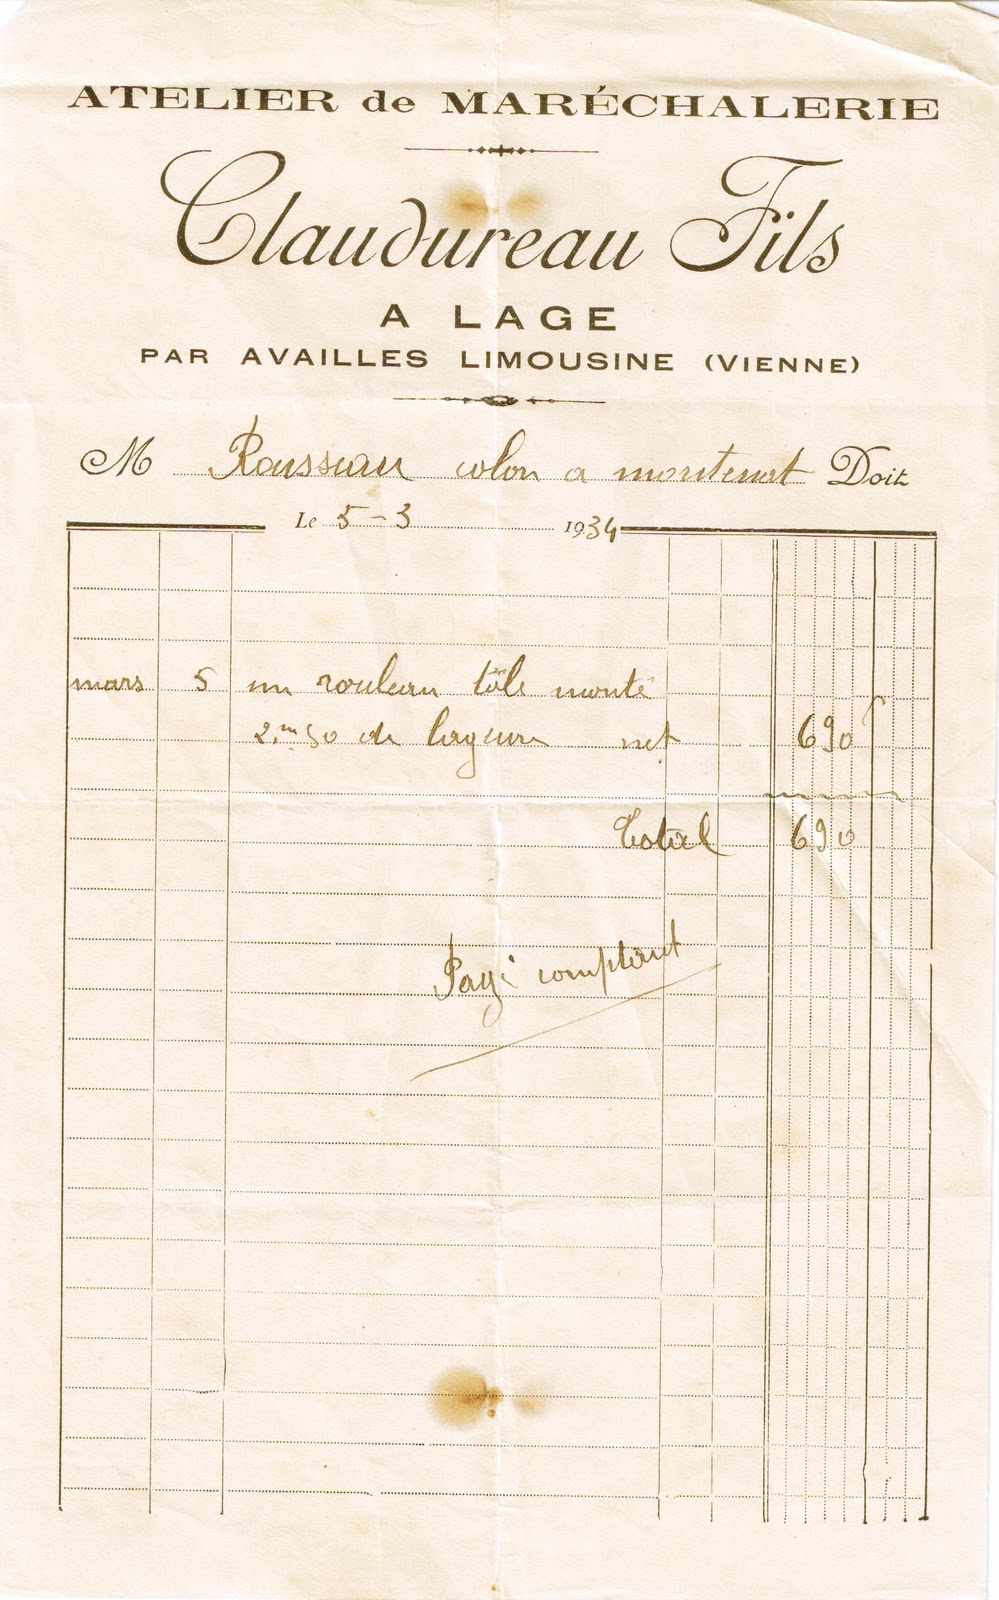 ATELIER de MARÉCHALERIE
Claudureau Fils
A LAGE
PAR AVAILLES LIMOUSINE (VIENNE)
M Rousseau colon a montenat Doit
Le 5-3 1934
mars 5 un rouleau tôle monté
2m50 de largeur net 690
Total 690
Payé comptant